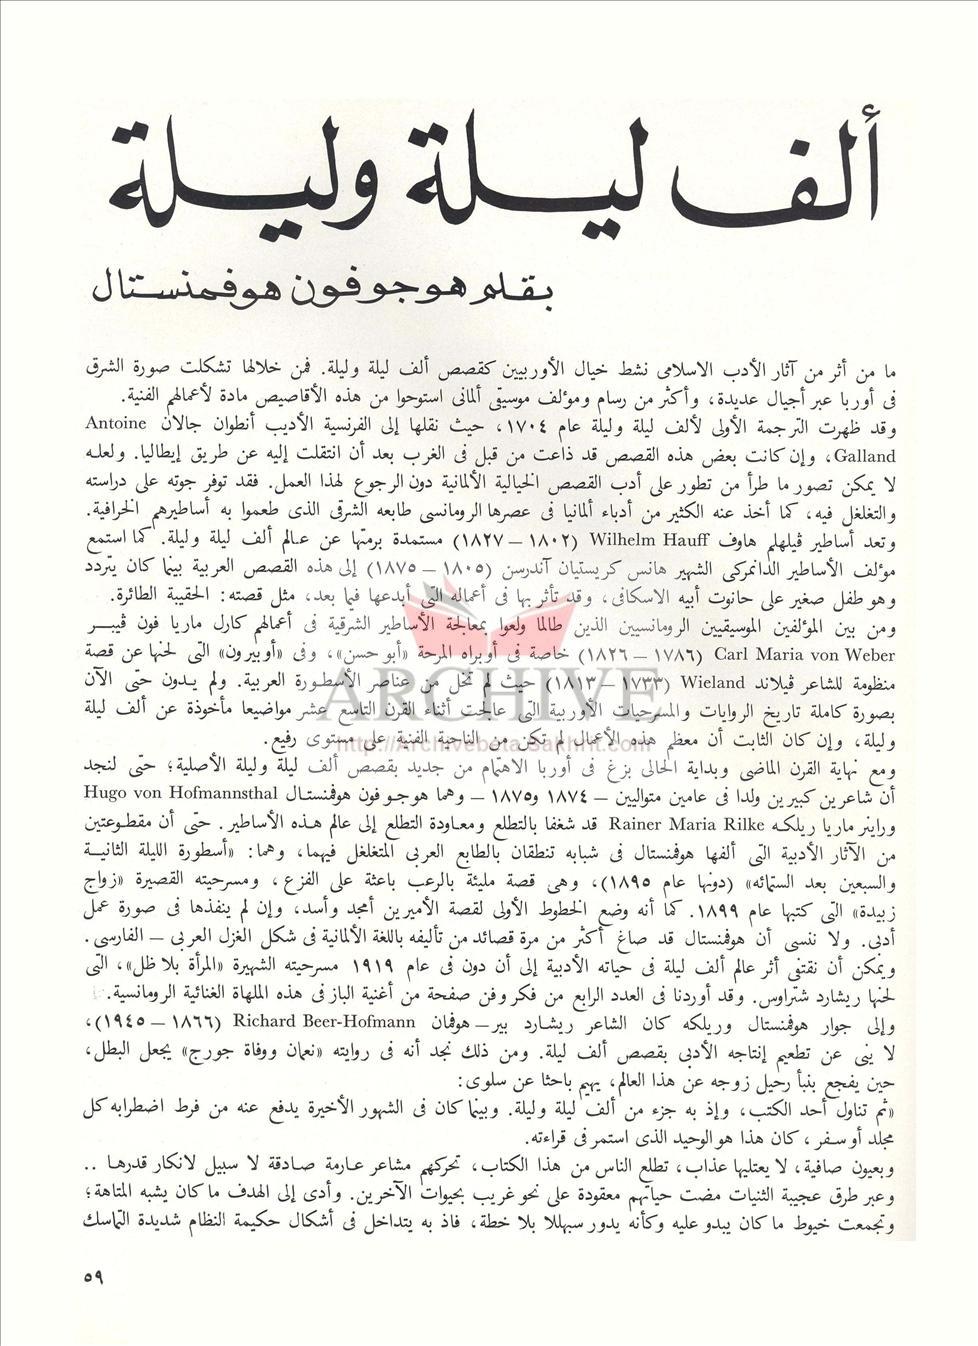 ألف ليلة وليلة
بقلم هوجو فون هوفمنستال
ما من أثر من آثار الأدب الاسلامى نشط خيال الأوربيين كقصص ألف ليلة وليلة. فمن خلالها تشكلت صورة الشرق
فى أوربا عبر أجيال عديدة، وأكثر من رسام ومؤلف موسيقى ألمانى استوحوا من هذه الأقاصيص مادة لأعمالهم الفنية.
وقد ظهرت الترجمة الأولى لألف ليلة وليلة عام ١٧٠٤، حيث نقلها إلى الفرنسية الأديب أنطوان جالان Antoine
Galland، وإن كانت بعض هذه القصص قد ذاعت من قبل فى الغرب بعد أن انتقلت إليه عن طريق إيطاليا. ولعله
لا يمكن تصور ما طرأ من تطور على أدب القصص الخيالية الألمانية دون الرجوع لهذا العمل. فقد توفر جوته على دراسته
والتغلغل فيه، كما أخذ عنه الكثير من أدباء ألمانيا فى عصرها الرومانسى طابعه الشرقى الذى طعموا به أساطيرهم الخرافية.
وتعد أساطير ڤيلهلم هاوف Wilhelm Hauff (١٨٠٢ – ١٨٢٧) مستمدة برمتها عن عالم ألف ليلة وليلة. كما استمع
مؤلف الأساطير الدانمركى الشهير هانس كريستيان آندرسن (١٨٠٥ – ١٨٧٥) إلى هذه القصص العربية بينما كان يتردد
وهو طفل صغير على حانوت أبيه الاسكافى، وقد تأثر بها فى أعماله التى أبدعها فيما بعد، مثل قصته: الحقيبة الطائرة.
ومن بين المؤلفين الموسيقيين الرومانسيين الذين طالما ولعوا بمعالجة الأساطير الشرقية فى أعمالهم كارل ماريا فون ڤيبر
Carl Maria von Weber (١٧٨٦ – ١٨٢٦) خاصة فى أوبراه المرحة «أبو حسن»، وفى «أوبيرون» التى لحنها عن قصة
منظومة للشاعر ڤيلاند Wieland (١٧٣٣ – ١٨١٣) حيث لم تخل من عناصر الأسطورة العربية. ولم يدون حتى الآن
بصورة كاملة تاريخ الروايات والمسرحيات الأوربية التى عالجت أثناء القرن التاسع عشر مواضيعا مأخوذة عن ألف ليلة
وليلة، وإن كان الثابت أن معظم هذه الأعمال لم تكن من الناحية الفنية على مستوى رفيع.
ومع نهاية القرن الماضى وبداية الحالى بزغ فى أوربا الاهتمام من جديد بقصص ألف ليلة وليلة الأصلية؛ حتى لنجد
أن شاعرين كبيرين ولدا فى عامين متواليين – ١٨٧٤ و١٨٧٥ – وهما هوجو فون هوفمنستال Hugo von Hofmannsthal
وراينر ماريا ريلكه Rainer Maria Rilke قد شغفا بالتطلع ومعاودة التطلع إلى عالم هذه الأساطير. حتى أن مقطوعتين
من الآثار الأدبية التى ألفها هوفمنستال فى شبابه تنطقان بالطابع العربى المتغلغل فيهما، وهما: «أسطورة الليلة الثانية
والسبعين بعد الستمائه» (دونها عام ١٨٩٥)، وهى قصة مليئة بالرعب باعثة على الفزع، ومسرحيته القصيرة «زواج
زبيدة» التى كتبها عام ١٨٩٩. كما أنه وضع الخطوط الأولى لقصة الأميرين أمجد وأسد، وإن لم ينفذها فى صورة عمل
أدبى. ولا ننسى أن هوفمنستال قد صاغ أكثر من مرة قصائد من تأليفه باللغة الألمانية فى شكل الغزل العربى – الفارسى.
ويمكن أن نقتفى أثر عالم ألف ليلة فى حياته الأدبية إلى أن دون فى عام ١٩١٩ مسرحيته الشهيرة «المرأة بلا ظل»، التى
لحنها ريشارد شتراوس. وقد أوردنا فى العدد الرابع من فكر وفن صفحة من أغنية الباز فى هذه الملهاة الغنائية الرومانسية.
وإلى جوار هوفمنستال وريلكه كان الشاعر ريشارد بير – هوفمان Richard Beer-Hofmann (١٨٦٦ – ١٩٤٥)،
لا ينى عن تطعيم إنتاجه الأدبى بقصص ألف ليلة. ومن ذلك نجد أنه فى روايته «نعمان ووفاة جورج» يجعل البطل،
حين يفجع بنبأ رحيل زوجه عن هذا العالم، يهيم باحثا عن سلوى:
«ثم تناول أحد الكتب، وإذ به جزء من ألف ليلة وليلة. وبينما كان فى الشهور الأخيرة يدفع عنه من فرط اضطرابه كل
مجلد أو سفر، كان هذا هو الوحيد الذى استمر فى قراءته.
وبعيون صافية، لا يعتليها عذاب، تطلع الناس من هذا الكتاب، تحركهم مشاعر عارمة صادقة لا سبيل لانكار قدرها ..
وعبر طرق عجيبة الثنيات مضت حياتهم معقودة على نحو غريب بحيوات الآخرين. وأدى إلى الهدف ما كان يشبه المتاهة؛
وتجمعت خيوط ما كان يبدو عليه وكأنه يدور سبهللا بلا خطة، فاذ به يتداخل فى أشكال حكيمة النظام شديدة التماسك
٥٩
ARCHIVE
http://Archivebeta.Sakhrit.com